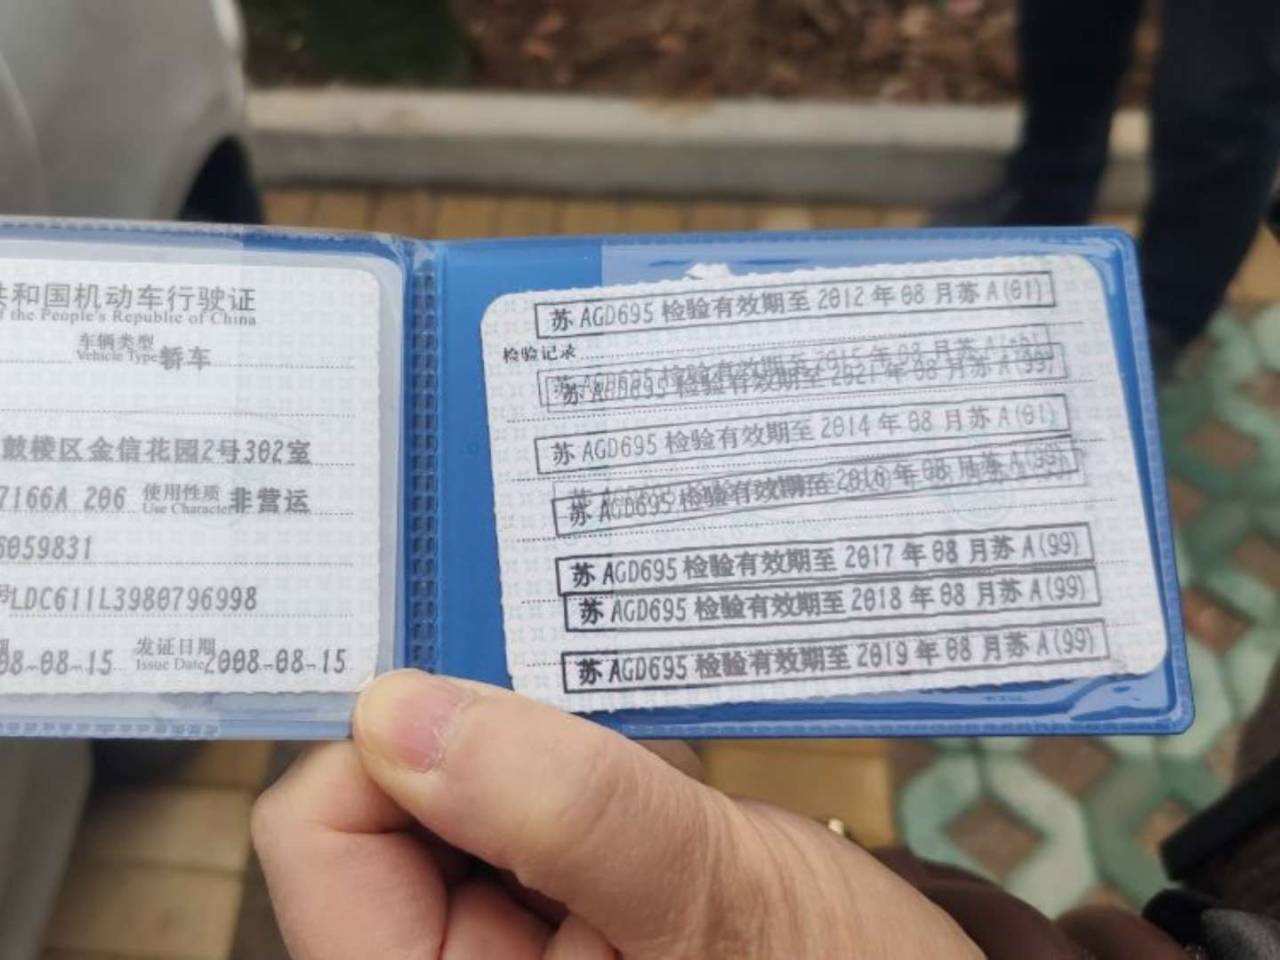 共和国机动车行驶证
the People's Republic of China
车辆类型
Vehicle Type 轿车
鼓楼区金信花园2号302室
7166A 206 使用性质 非营运
Use Character
6059831
号LDC611L3980796998
08-08-15 发证日期 2008-08-15
Issue Date
苏 AGD695 检验有效期至 2012 年 08 月苏 A(01)
检验记录
苏 AGD695 检验有效期至 2014 年 08 月苏 A(01)
苏 AGD695 检验有效期至
苏 AGD695 检验有效期至 2017 年 08 月苏 A(99)
苏 AGD695 检验有效期至 2018 年 08 月苏 A(99)
苏 AGD695 检验有效期至 2019 年 08 月苏 A(99)